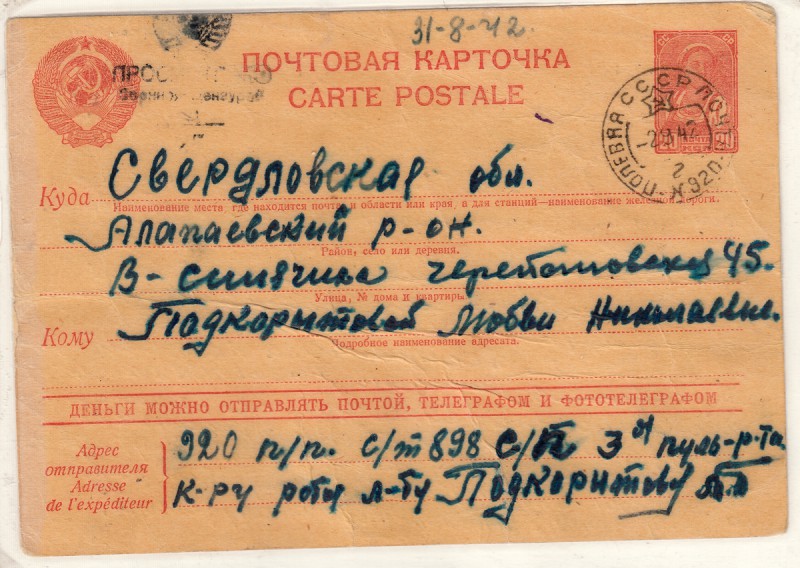 31-8-42.
ПОЧТОВАЯ КАРТОЧКА
CARTE POSTALE
ПОЛЕВАЯ СССР ПОЧТА № 920
42
2
20
Куда Свердловская обл.
Наименование места, где находится почта и области или края, а для станций—наименование железной дороги.
Алапаевский р-он.
Район, село или деревня.
В-Синячиха 45.
Улица, № дома и квартиры.
Кому Подкорытовой Любви Николаевне.
Подробное наименование адресата.
ДЕНЬГИ МОЖНО ОТПРАВЛЯТЬ ПОЧТОЙ, ТЕЛЕГРАФОМ И ФОТОТЕЛЕГРАФОМ
Адрес отправителя
Adresse de l'expéditeur
920 п/п. с/п 898 с/п 3 ая пуль-р-та
к-ру роты л-ту Подкорытову